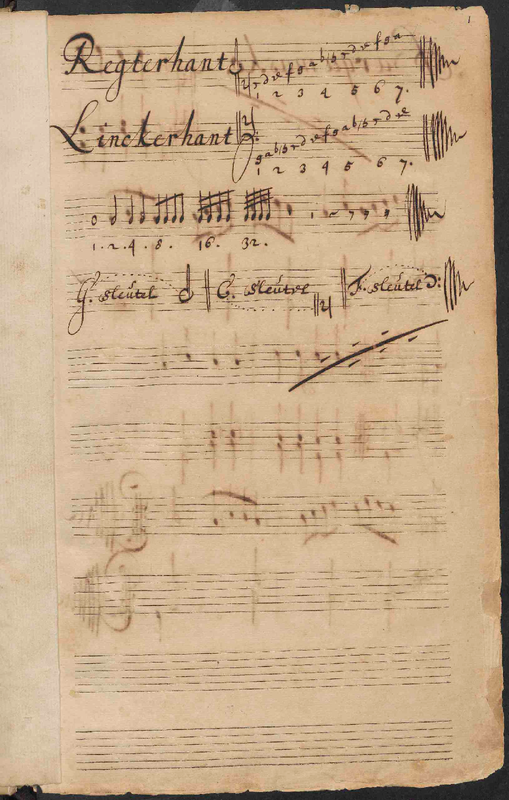 1
Regterhant
1 2 3 4 5 6 7.
Linckerhant
1 2 3 4 5 6 7.
1. 2. 4. 8. 16. 32.
G. sleutel C. sleutel F. sleutel